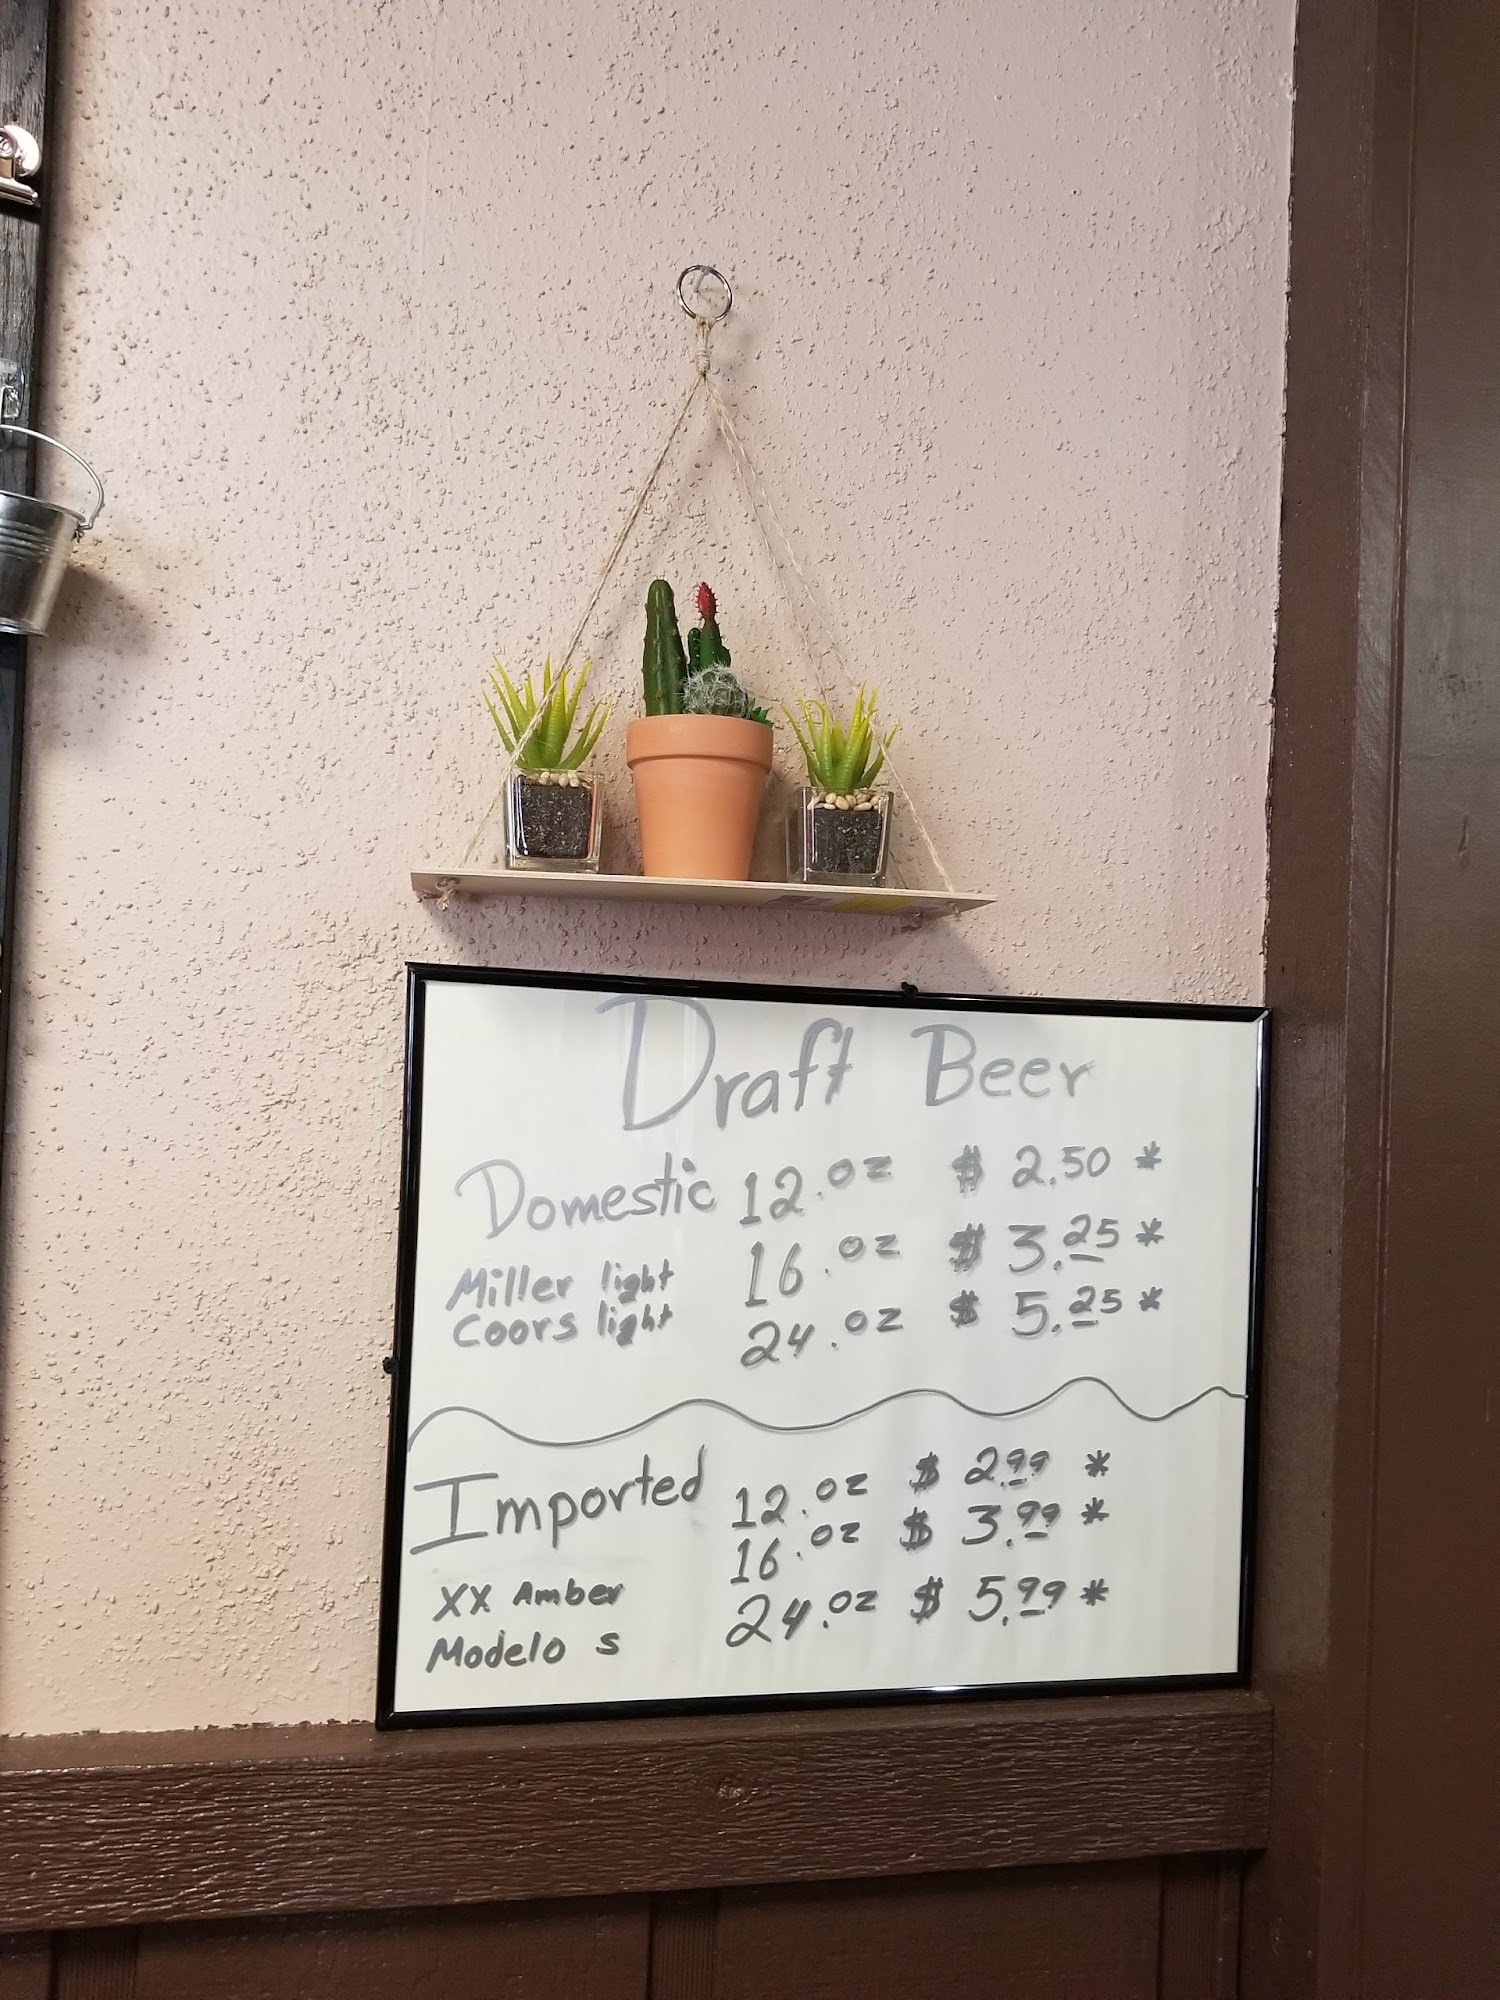 Draft Beer
Domestic 12.oz $ 2.50 *
Miller light 16.oz $ 3.25 *
Coors light 24.oz $ 5.25 *
Imported 12.oz $ 2.99 *
16.oz $ 3.99 *
XX Amber 24.oz $ 5.99 *
Modelo s